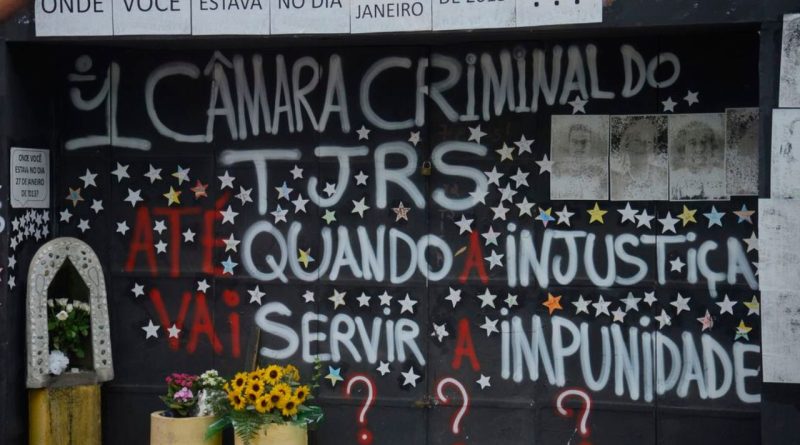 ONDE VOCÊ ESTAVA NO DIA JANEIRO DE 2013 ...
1 CÂMARA CRIMINAL DO
TJRS
ATÉ QUANDO A INJUSTIÇA
VAI SERVIR A IMPUNIDADE
? ? ?
ONDE VOCÊ
ESTAVA NO DIA
27 DE JANEIRO
DE 2013?